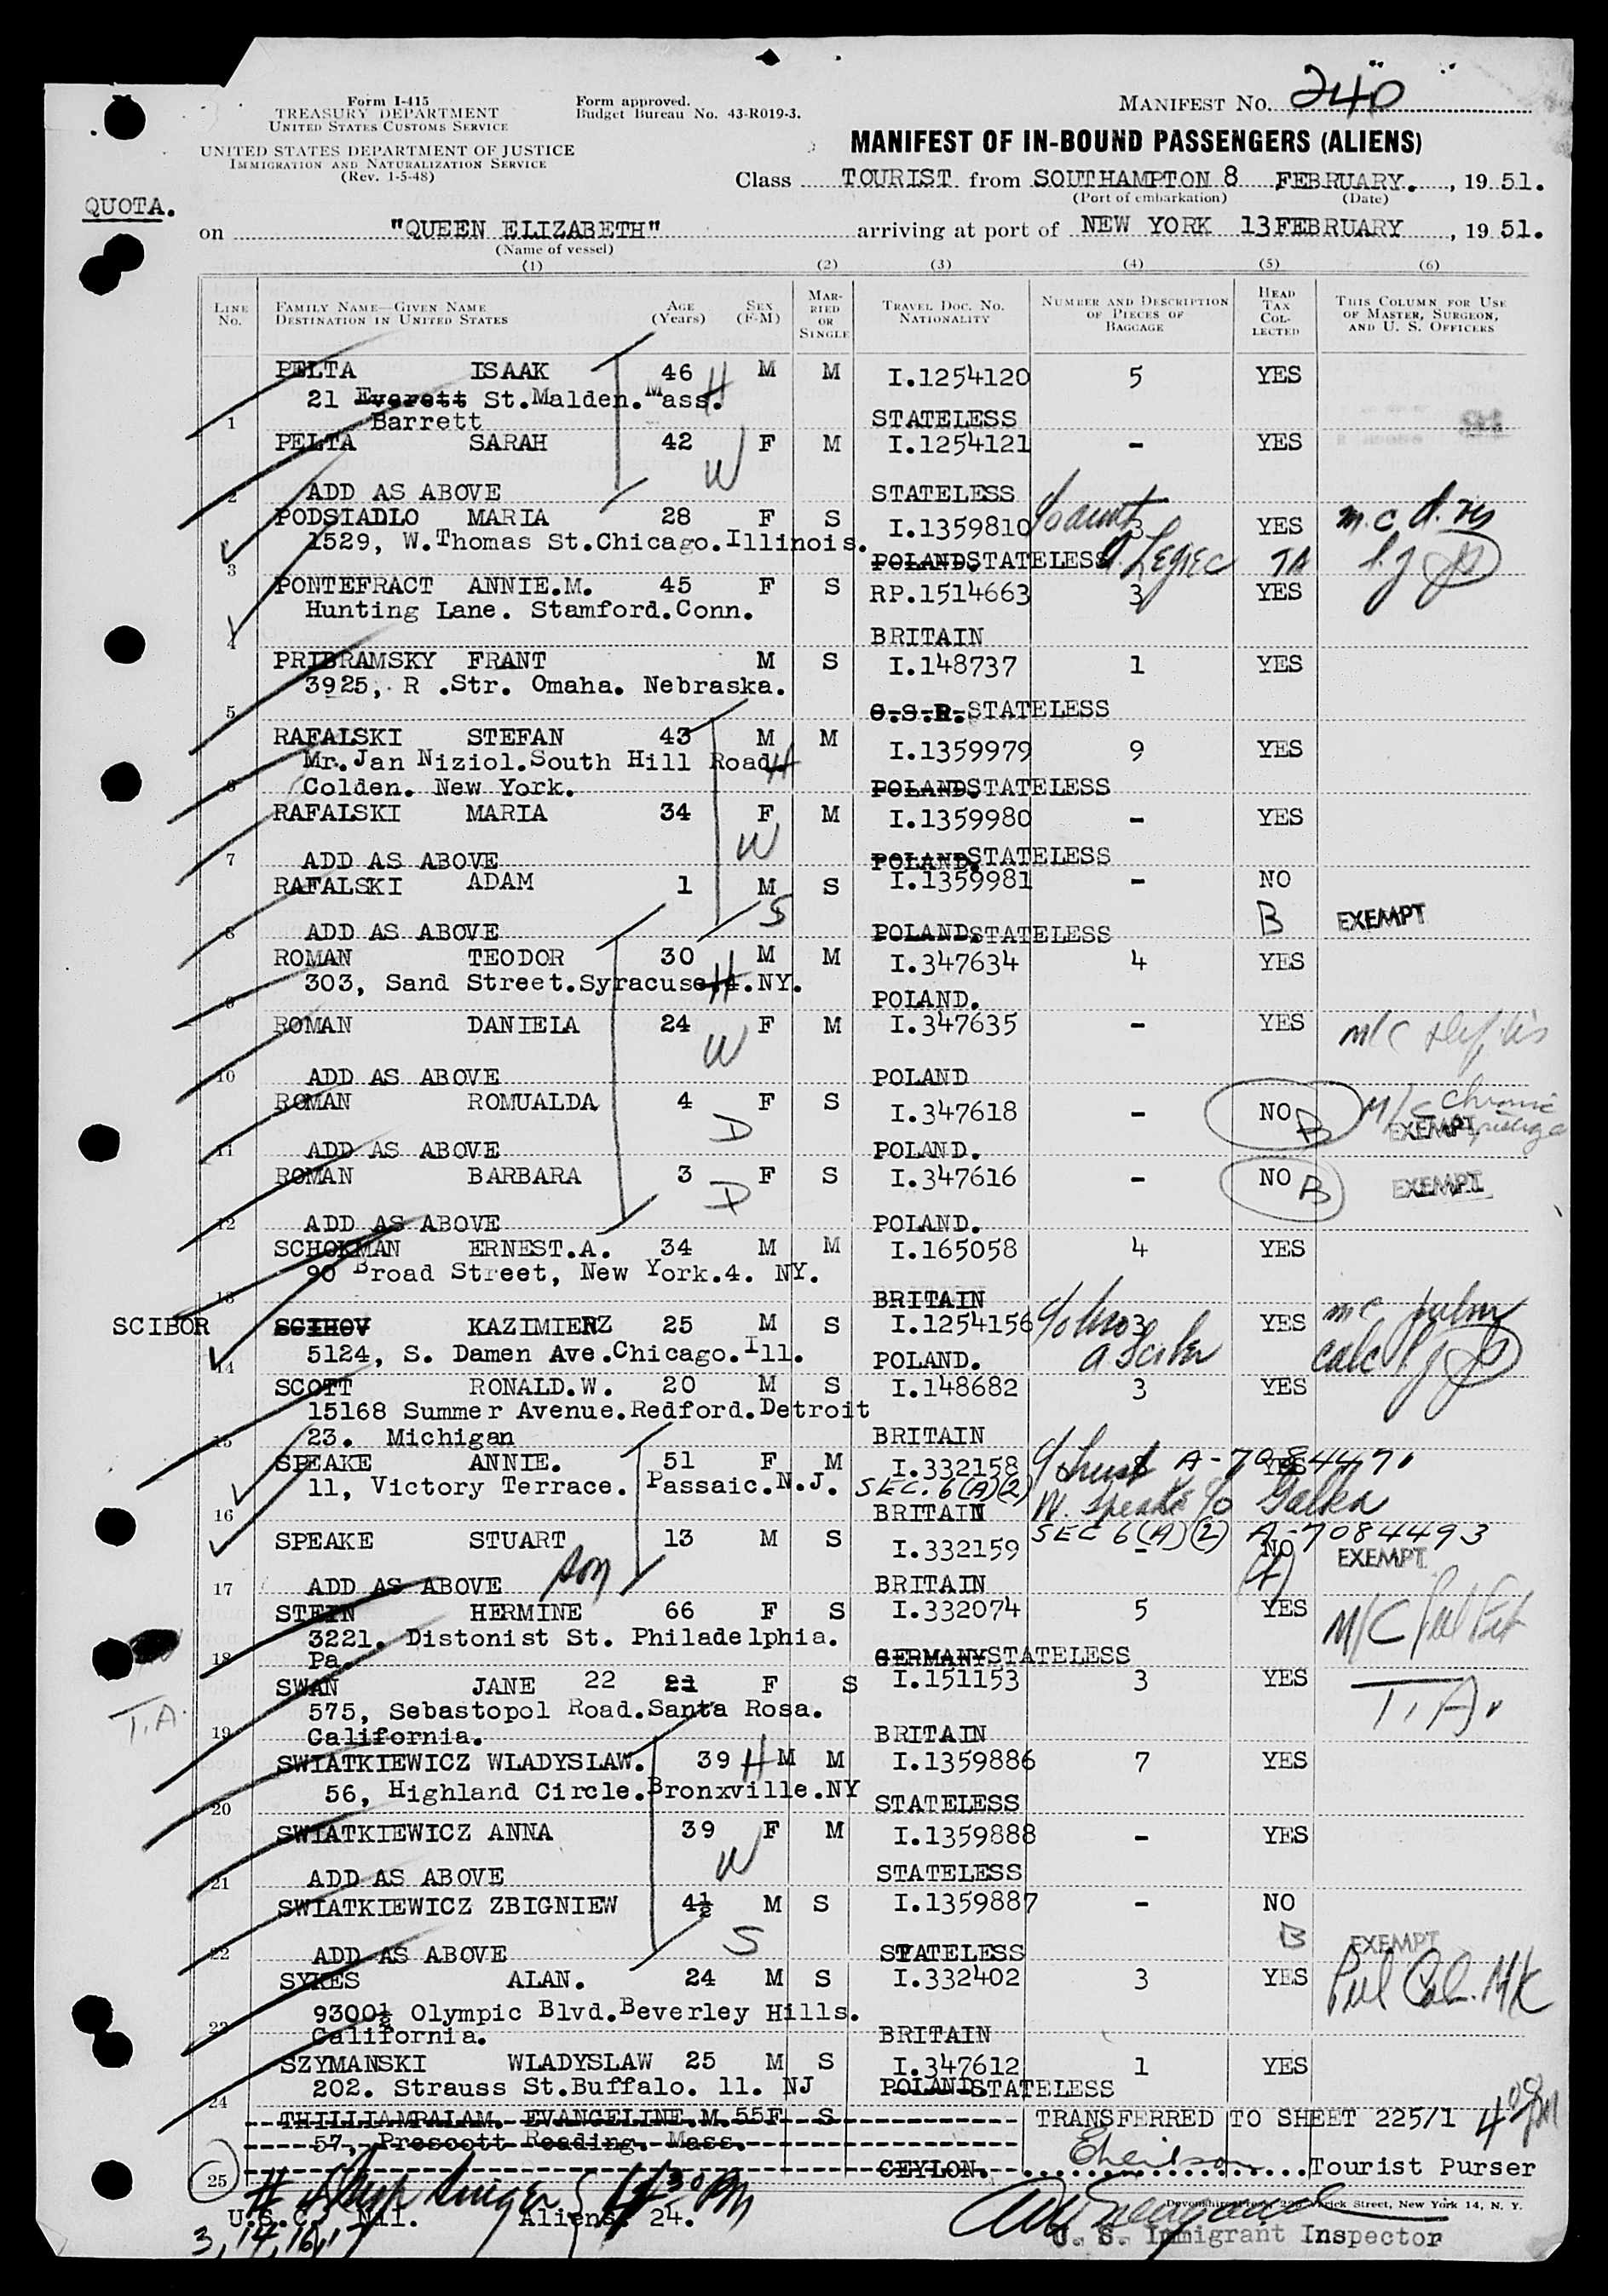 Form I-415
TREASURY DEPARTMENT
UNITED STATES CUSTOMS SERVICE
UNITED STATES DEPARTMENT OF JUSTICE
IMMIGRATION AND NATURALIZATION SERVICE
(Rev. 1-5-48)
Form approved.
Budget Bureau No. 43-R019-3.
MANIFEST NO. 240
MANIFEST OF IN-BOUND PASSENGERS (ALIENS)
Class TOURIST from SOUTHAMPTON 8 FEBRUARY. , 19 51.
(Port of embarkation) (Date)
QUOTA.
on "QUEEN ELIZABETH" arriving at port of NEW YORK 13 FEBRUARY , 19 51.
(Name of vessel)
(1) (2) (3) (4) (5) (6)
LINE No. FAMILY NAME—GIVEN NAME DESTINATION IN UNITED STATES AGE (Years) SEX (F-M) MARRIED OR SINGLE TRAVEL DOC. NO. NATIONALITY NUMBER AND DESCRIPTION OF PIECES OF BAGGAGE HEAD TAX COLLECTED THIS COLUMN FOR USE OF MASTER, SURGEON, AND U. S. OFFICERS
PELTA ISAAK 46 M M I.1254120 5 YES
21 Everett St.Malden.Mass. H
1 Barrett STATELESS
PELTA SARAH 42 F M I.1254121 - YES
W
2 ADD AS ABOVE STATELESS
PODSIADLO MARIA 28 F S I.1359810 c/o aunt 3 YES m.c d. vis
1529, W.Thomas St.Chicago.Illinois.
3 POLAND.STATELESS TA
PONTEFRACT ANNIE.M. 45 F S RP.1514663 3 YES
Hunting Lane. Stamford.Conn.
4 BRITAIN
PRIBRAMSKY FRANT M S I.148737 1 YES
3925, R .Str. Omaha. Nebraska.
5 C.S.R.STATELESS
RAFALSKI STEFAN 43 M M I.1359979 9 YES
Mr.Jan Niziol.South Hill Road H
6 Colden. New York. POLANDSTATELESS
RAFALSKI MARIA 34 F M I.1359980 - YES
W
7 ADD AS ABOVE POLAND.STATELESS
RAFALSKI ADAM 1 M S I.1359981 - NO
S B EXEMPT
8 ADD AS ABOVE POLAND.STATELESS
ROMAN TEODOR 30 M M I.347634 4 YES
303, Sand Street.Syracuse.4.NY. H
9 POLAND.
ROMAN DANIELA 24 F M I.347635 - YES M/C
W
10 ADD AS ABOVE POLAND
ROMAN ROMUALDA 4 F S I.347618 - NO B M/C Chronic
D EXEMPT
11 ADD AS ABOVE POLAND.
ROMAN BARBARA 3 F S I.347616 - NO B EXEMPT
D
12 ADD AS ABOVE POLAND.
SCHOKMAN ERNEST.A. 34 M M I.165058 4 YES
90 Broad Street, New York.4. NY.
13 BRITAIN
SCIBOR SCIHOV KAZIMIERZ 25 M S I.1254156 c/o bro 3 YES mc pulm
5124, S. Damen Ave.Chicago.Ill. calc
14 POLAND.
SCOTT RONALD.W. 20 M S I.148682 3 YES
15168 Summer Avenue.Redford.Detroit
15 23. Michigan BRITAIN
SPEAKE ANNIE. 51 F M I.332158 c/o husb 8 A-7084471 YES
11, Victory Terrace. Passaic.N.J. SEC. 6(A)(2)
16 BRITAIN W. Speake c/o Galka
SPEAKE STUART 13 M S I.332159 SEC 6(A)(2) A-7084493
son - NO EXEMPT
17 ADD AS ABOVE BRITAIN
STEIN HERMINE 66 F S I.332074 5 YES M/C
3221. Distonist St. Philadelphia.
18 Pa. GERMANYSTATELESS
SWAN JANE 22 21 F S I.151153 3 YES T.A.
T.A. 575, Sebastopol Road.Santa Rosa.
19 California. BRITAIN
SWIATKIEWICZ WLADYSLAW. 39 H M M I.1359886 7 YES
56, Highland Circle.Bronxville.NY
20 STATELESS
SWIATKIEWICZ ANNA 39 F M I.1359888 - YES
W
21 ADD AS ABOVE STATELESS
SWIATKIEWICZ ZBIGNIEW 4½ M S I.1359887 - NO
S B EXEMPT
22 ADD AS ABOVE STATELESS
SYKES ALAN. 24 M S I.332402 3 YES Pul Cal. MK
9300½ Olympic Blvd.Beverley Hills.
23 California. BRITAIN
SZYMANSKI WLADYSLAW 25 M S I.347612 1 YES
202. Strauss St.Buffalo. 11. NJ POLANDSTATELESS
24
THILLIAMPALAM. EVANGELINE.M.55F S TRANSFERRED TO SHEET 225/1
57, Prescott Reading. Mass.
25 CEYLON. Tourist Purser
U.S.C. Nil. Aliens. 24. 4/30 PM
3, 14, 16, 17
Street, New York 14, N. Y.
U. S. Immigrant Inspector